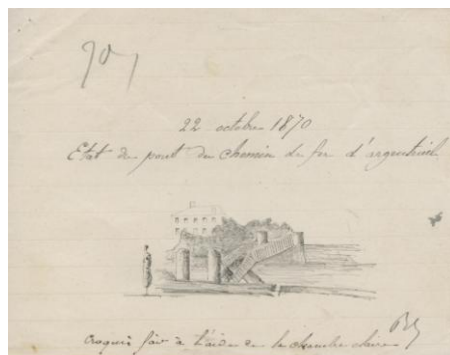 22 octobre 1870
Etat du pont du chemin de fer d'argenteuil
Croquis fait à l'aide de la chambre claire